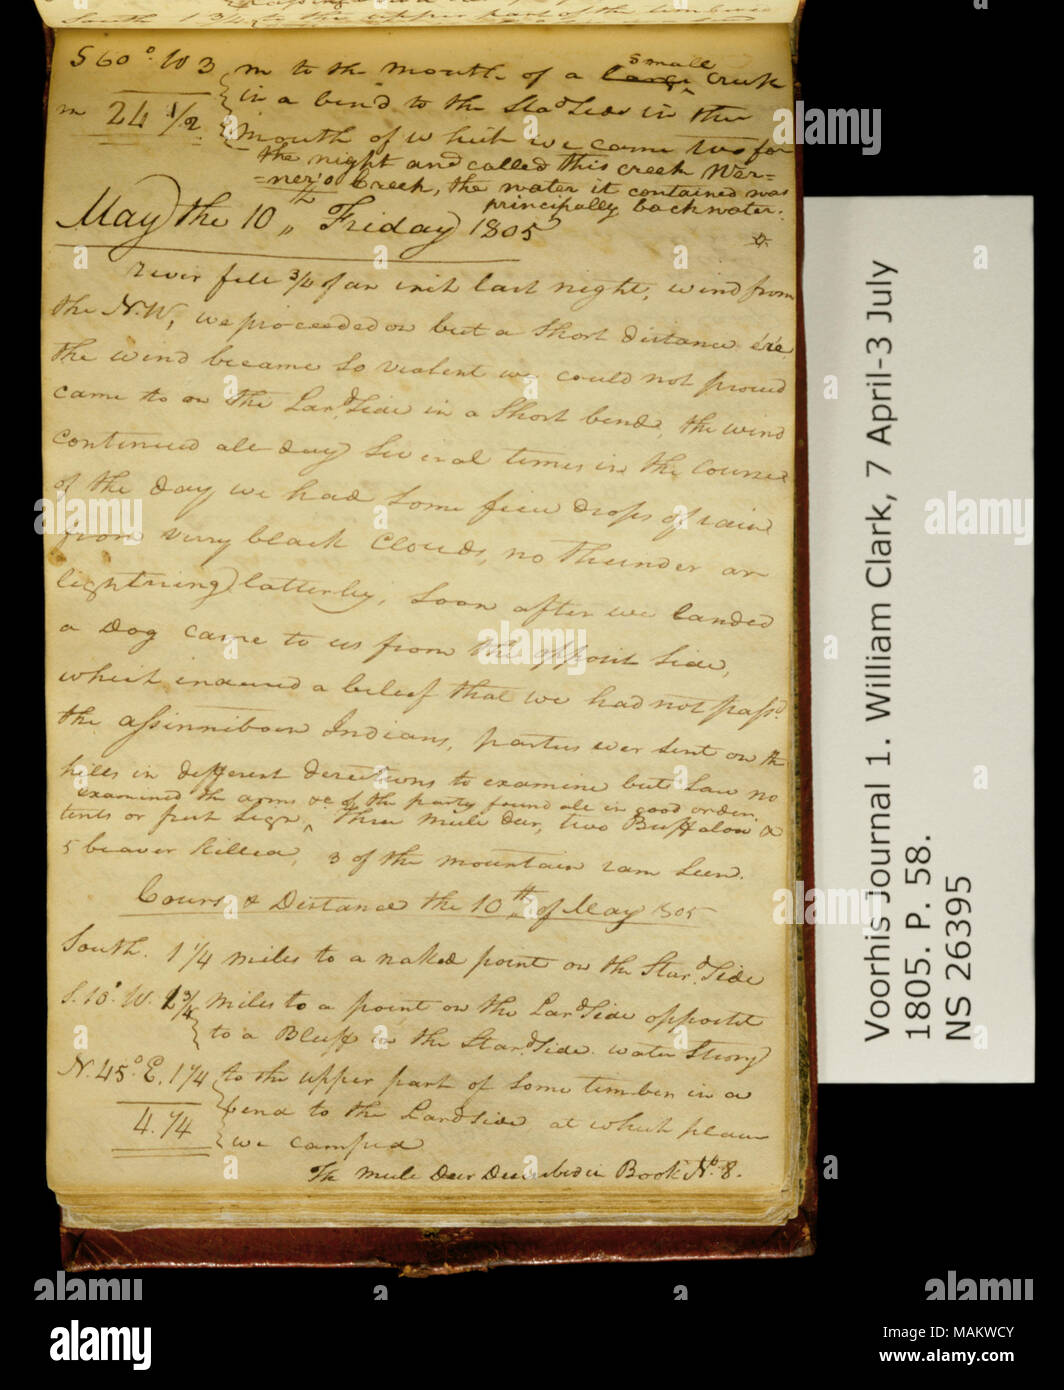 S 60° W 3 m to the mouth of a large small Creek
in a bend to the Stad Side in the
m 24 1/2 mouth of which we came too for
the night and called this creek Wer=
=ner's Creek, the water it contained was
principally backwater.
May the 10th Friday 1805
river fell 3/4 of an inch last night, wind from
the N.W, we proceeded on but a Short distance ere
the wind became So violent we could not proceed
came to on the Lard Side in a Short bend, the wind
continued all day Several times in the course
of the day we had Some fiew drops of rain
from verry black Clouds, no thunder or
lightning latterly, Soon after we landed
a Dog came to us from the opposit Side,
which induced a belief that we had not passd
the assinniboin Indians, parties wer Sent on the
hills in different derections to examine but Saw no
examined the arms &c of the party found all in good order.
tents or fresh Sign, three mule deer, two Buffalow &
5 beaver killed, 3 of the mountain ram Seen.
Cours & Distance the 10th of May 1805
South. 1 1/4 miles to a naked point on the Star,d Side
S. 10° W. 1 3/4 miles to a point on the Lard Side opposit
to a Bluff on the Stard Side. water Strong
N. 45° E. 1 1/4 to the upper part of Some timber in a
4. 1/4 bend to the Lard Side, at which place
we camped
The mule deer Described in Book No. 8.
Voorhis Journal 1. William Clark, 7 April-3 July
1805. P. 58.
NS 26395
alamy
Image ID: MAKWCY
www.alamy.com